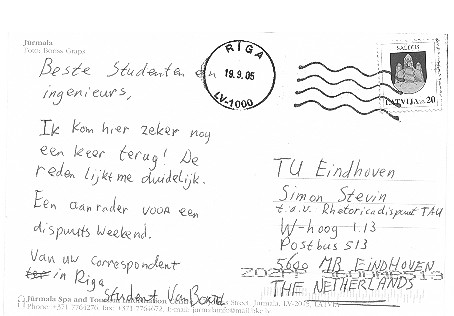 Jūrmala
Foto: Boriss Graps
Beste Studenten en
ingenieurs,
Ik kom hier zeker nog
een keer terug! De
reden lijkt me duidelijk.
Een aanrader voor een
dispuuts weekend.
Van uw correspondent
in Riga
Student Van Boord
RĪGA
19.9.05
LV-1000
SALDUS
LATVIJA 20
TU Eindhoven
Simon Stevin
t.a.v. Rhetoricadispuut TAU
W-hoog 1.13
Postbus 513
5600 MB EINDHOVEN
THE NETHERLANDS
Jūrmala Spa and Tourism Information
Street Jurmala, LV-2015, LATVIA
Phone +371 7764276 fax +371 7764672, E-mail